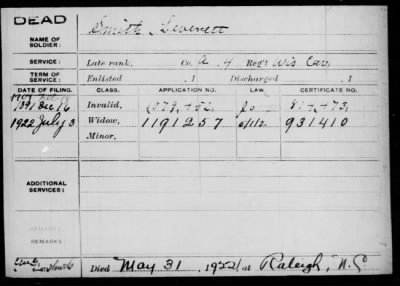 DEAD
NAME OF SOLDIER: Smith Leverett
SERVICE: Late rank, Co. A. 4 Reg't Wis Cav.
TERM OF SERVICE: Enlisted , 1 Discharged , 1
DATE OF FILING. CLASS. APPLICATION NO. LAW. CERTIFICATE NO.
1891 Dec 16 Invalid,
1922 July 3 Widow, 1191257 931410
Minor,
ADDITIONAL SERVICES:
REMARKS
REMARKS:
Died May 31, 1922, at Raleigh, N.C